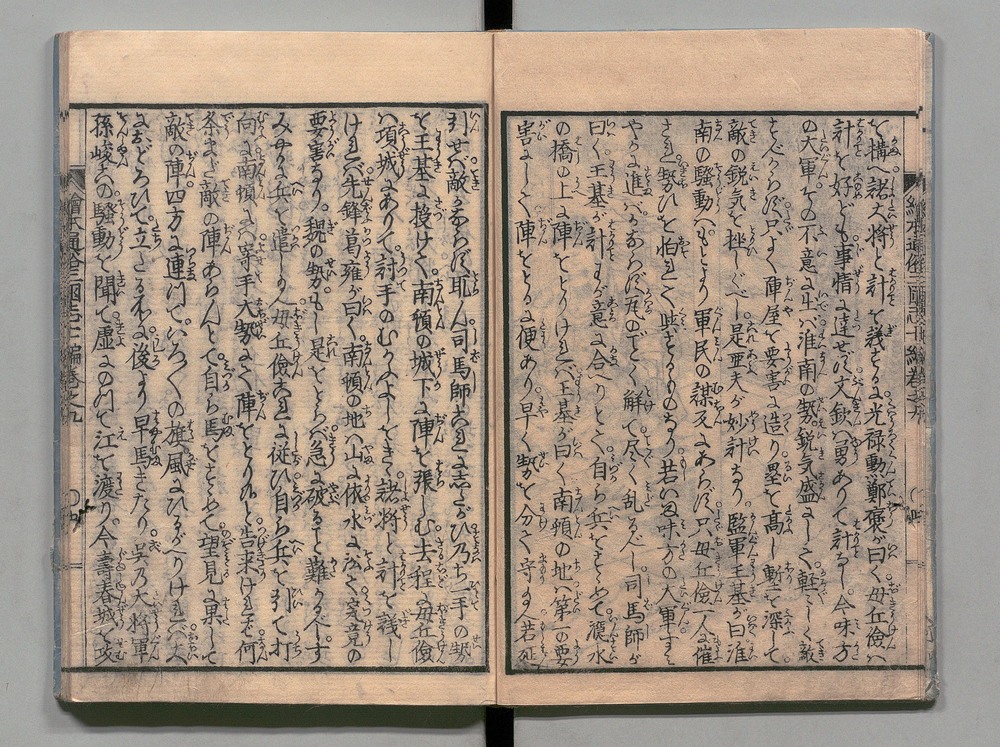 を構へ諸大将と計を議するに光禄勲鄭袤が曰く毌丘儉ハ
計を好ども事情に達せず文欽ハ勇ありて計なし今味方
の大軍その不意に出バ淮南の勢鋭気盛にして軽〳〵しく敵
すべからず只よく陣屋を要害に造り塁を高し塹を深して
敵の鋭気を挫しぐべし是亜夫が妙計なり監軍王基が曰淮
南の騒動ハもとより軍民の謀叛にあらず只毌丘儉一人に催
され勢ひを怕れて此をるものなり若ハ味方の大軍すミ
やかに進バかならず瓦のごとく解て尽く乱るべし司馬師が
曰く王基が計わが意に合へりとて自ら兵をすゝめて㶏水
の橋の上に陣をとりけれバ王基が曰く南頓の地ハ第一の要
害よしく陣をとるに便あり早く勢を分て守るべし若延
引せバ敵かならず取ん司馬師これにしたがひ乃ち一手の勢
を王基に授けて南頓の城下に陣を張しむ去程に毌丘儉
ハ項城にありて討手のむかふよしをきゝ諸将と計を議し
けれバ先鋒葛雍が曰く南頓の地ハ山に依水に沿て究竟の
要害なり魏の勢もし是をとらバ急に破ること難かるべしす
みやかに兵を遣し給へ毌丘儉これに従ひ自ら兵を引て打
向に南頓にハ寄手大勢にて陣をとりぬと告来けれども何
条まだ敵の陣あらんとて自ら馬をすゝめて望見に果して
敵の陣四方に連りていろ〳〵の旗風にひるがへりけれバ大
におどろひて立たる処に後より早馬きたり呉乃大将軍
孫峻この騒動を聞て虚にのりて江を渡り今壽春城を攻
繪本通俗三國志七編卷之九